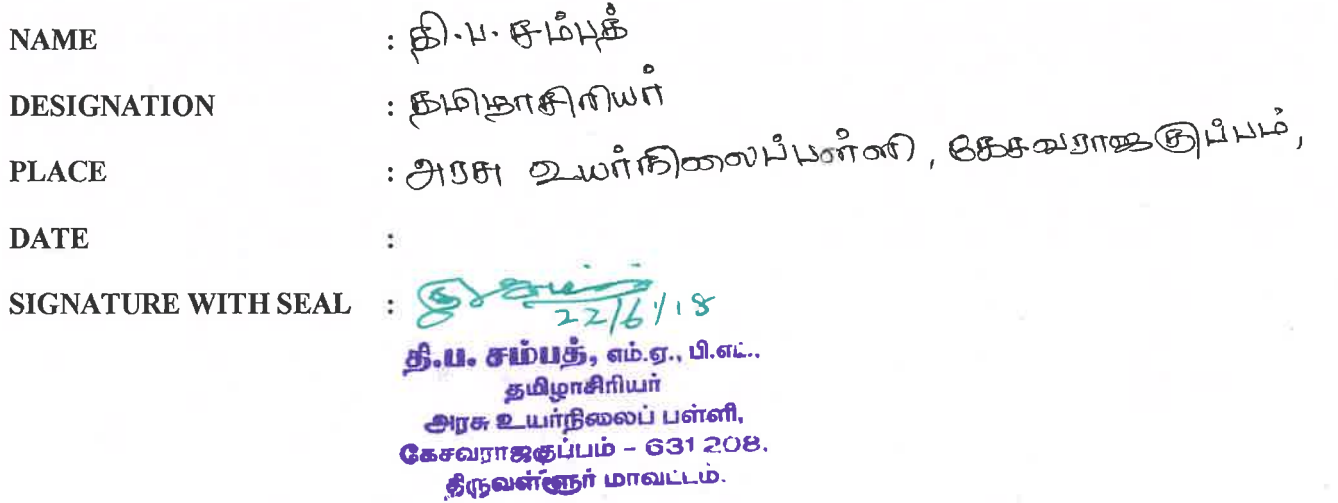 NAME : தி.ப. சம்பத்
DESIGNATION : தமிழாசிரியர்
PLACE : அரசு உயர்நிலைப்பள்ளி, கேசவராஜகுப்பம்,
DATE :
SIGNATURE WITH SEAL :
22/6/18
தி.ப. சம்பத், எம்.ஏ., பி.எட்.,
தமிழாசிரியர்
அரசு உயர்நிலைப் பள்ளி,
கேசவராஜகுப்பம் – 631 208.
திருவள்ளூர் மாவட்டம்.